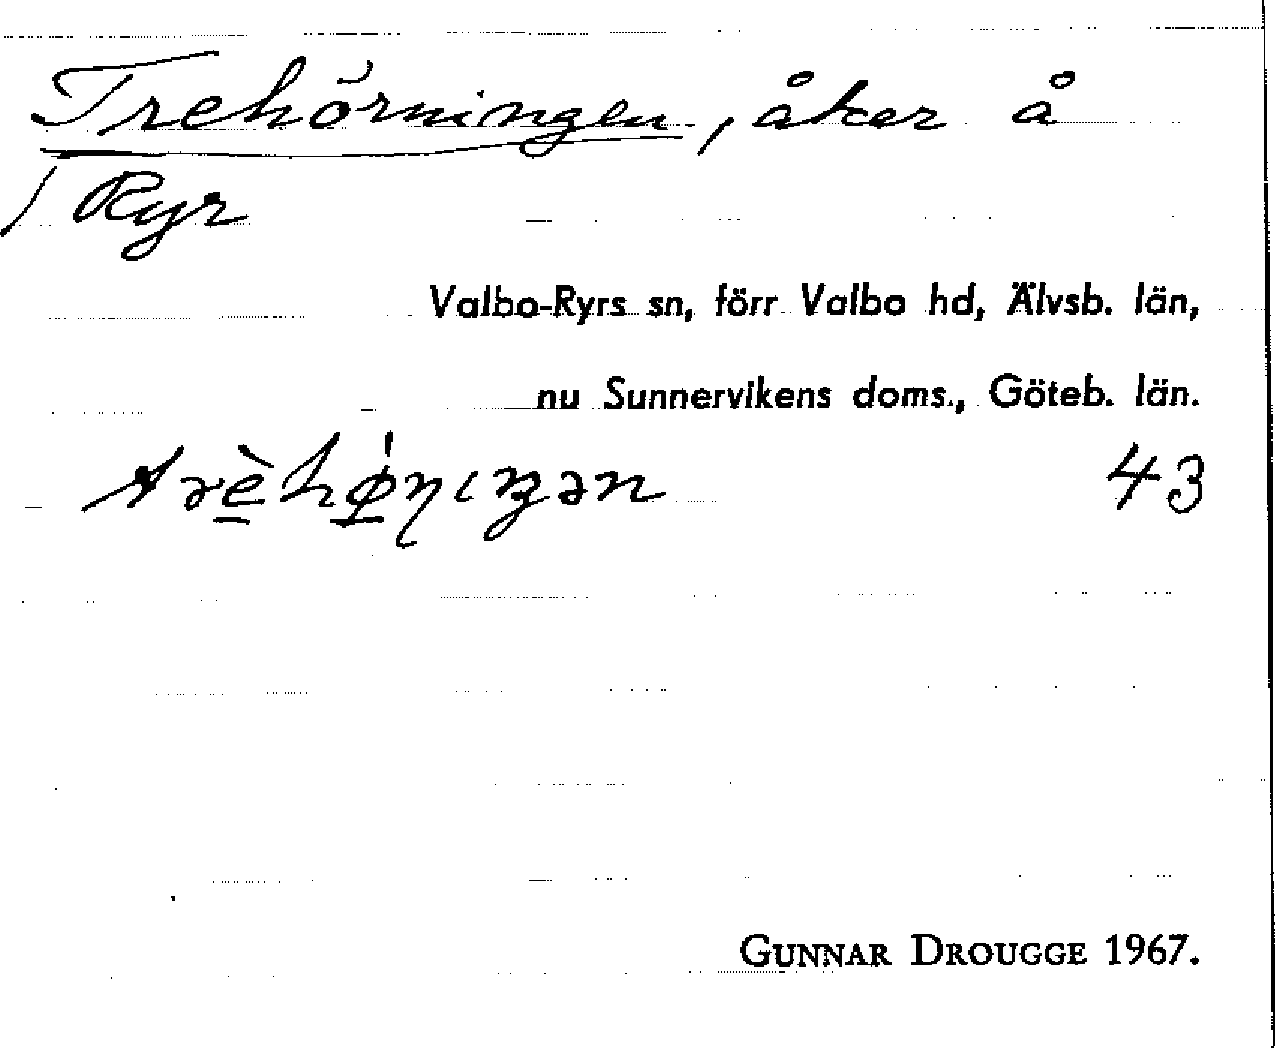 Trehörningen, åker å
/ Ryr
Valbo-Ryrs sn, förr Valbo hd, Älvsb. län,
nu Sunnervikens doms., Göteb. län.
trè̱hǿ̱ɳıŋən 43
GUNNAR DROUGGE 1967.